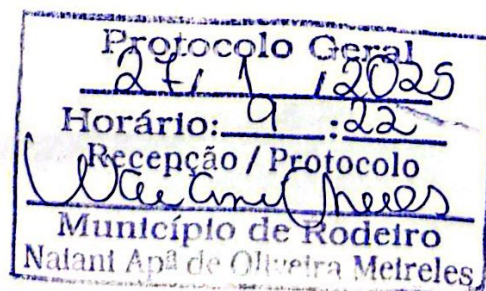 Protocolo Geral
27/ 1 /2025
Horário: 9 :22
Recepção / Protocolo
Município de Rodeiro
Naiani Apª de Oliveira Meireles